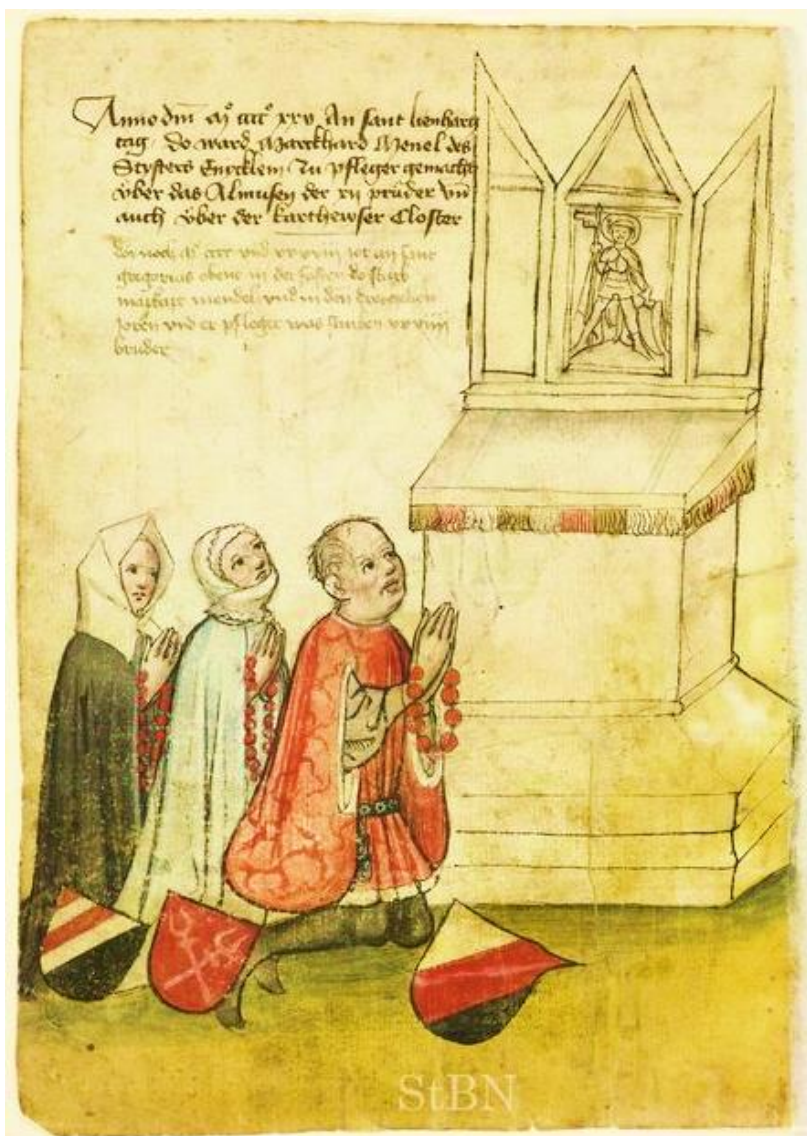 Anno dm mº ccccº xxv An sant lienharcz
tag do ward Marckhard Menel des
Styfters Enicklein Zu pfleger gemacht
vber das Almusen der xij prüder vñ
auch vber der karthewser Closter
Dor noch mº cccc vnd xxxviii jor an sant
gregorius obent in der fasten do starb
markart mendel vnd in den dreyczehen
Joren vnd er pfleger was
bruder
StBN